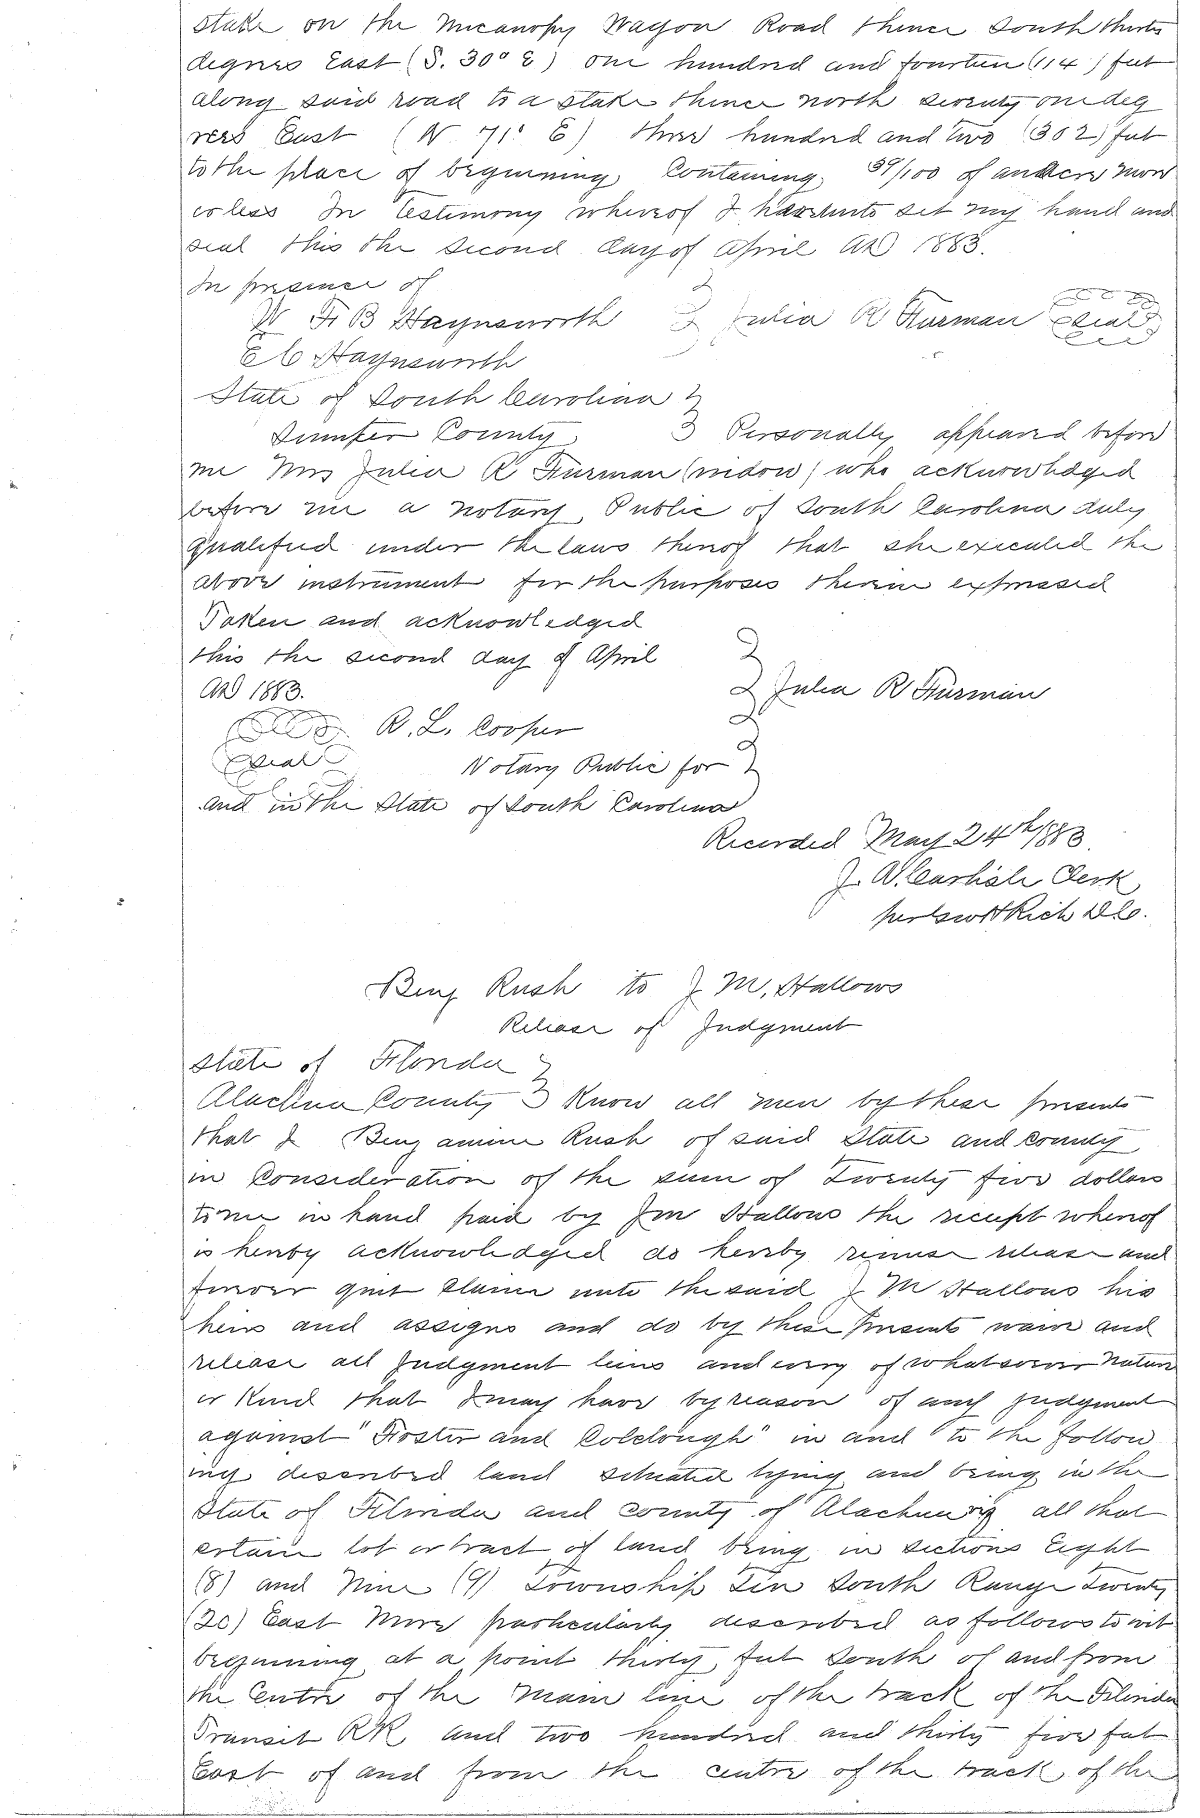 stake on the Micanopy Wagon Road thence South thirty
degrees East (S. 30° E) one hundred and fourteen (114) feet
along said road to a stake thence north seventy one deg
rees East (N 71° E) three hundred and two (302) feet
to the place of beginning Containing 39/100 of an acre more
or less In Testimony whereof I have hereunto set my hand and
seal this the second day of April AD 1883.
In presence of
W F B Haynsworth } Julia R Furman Seal
E C Haynsworth
State of South Carolina }
Sumter County } Personally appeared before
me Mrs Julia R Furman (widow) who acknowledged
before me a Notary Public of South Carolina duly
qualified under the laws thereof that she executed the
above instrument for the purposes therein expressed
Taken and acknowledged
this the second day of April
AD 1883. } Julia R Furman
R. L. Cooper
Seal Notary Public for
and in the State of South Carolina
Recorded May 24th/1883.
J. A. Carlisle Clerk
per Rich D.C.
Benj Rush to J M. Hallows
Release of Judgment
State of Florida }
Alachua County } Know all men by these presents
that I Benjamine Rush of said State and county
in Consideration of the sum of Twenty five dollars
to me in hand paid by J M Hallows the receipt whereof
is hereby acknowledged do hereby remise release and
forever quit claim unto the said J M Hallows his
heirs and assigns and do by these presents waive and
release all Judgment liens and every of whatsoever nature
or Kind that I may have by reason of any Judgment
against "Foster and Colclough" in and to the follow
ing described land situated lying and being in the
State of Florida and county of Alachua viz all that
certain lot or tract of land being in sections Eight
(8) and Nine (9) Township Ten South Range Twenty
(20) East More particularly described as follows to wit
beginning at a point thirty feet South of and from
the Centre of the main line of the track of the Florida
Transit RR and two hundred and thirty five feet
East of and from the centre of the track of the